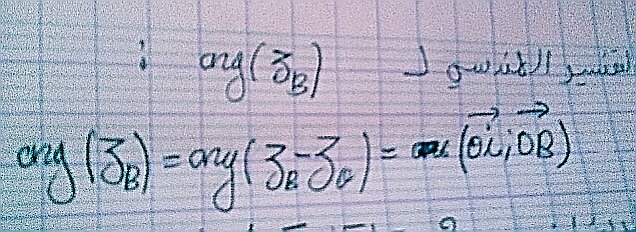 التفسير الهندسي لـ arg(z_B) :
arg(z_B) = arg(z_B - z_O) = (\vec{OI}; \vec{OB})